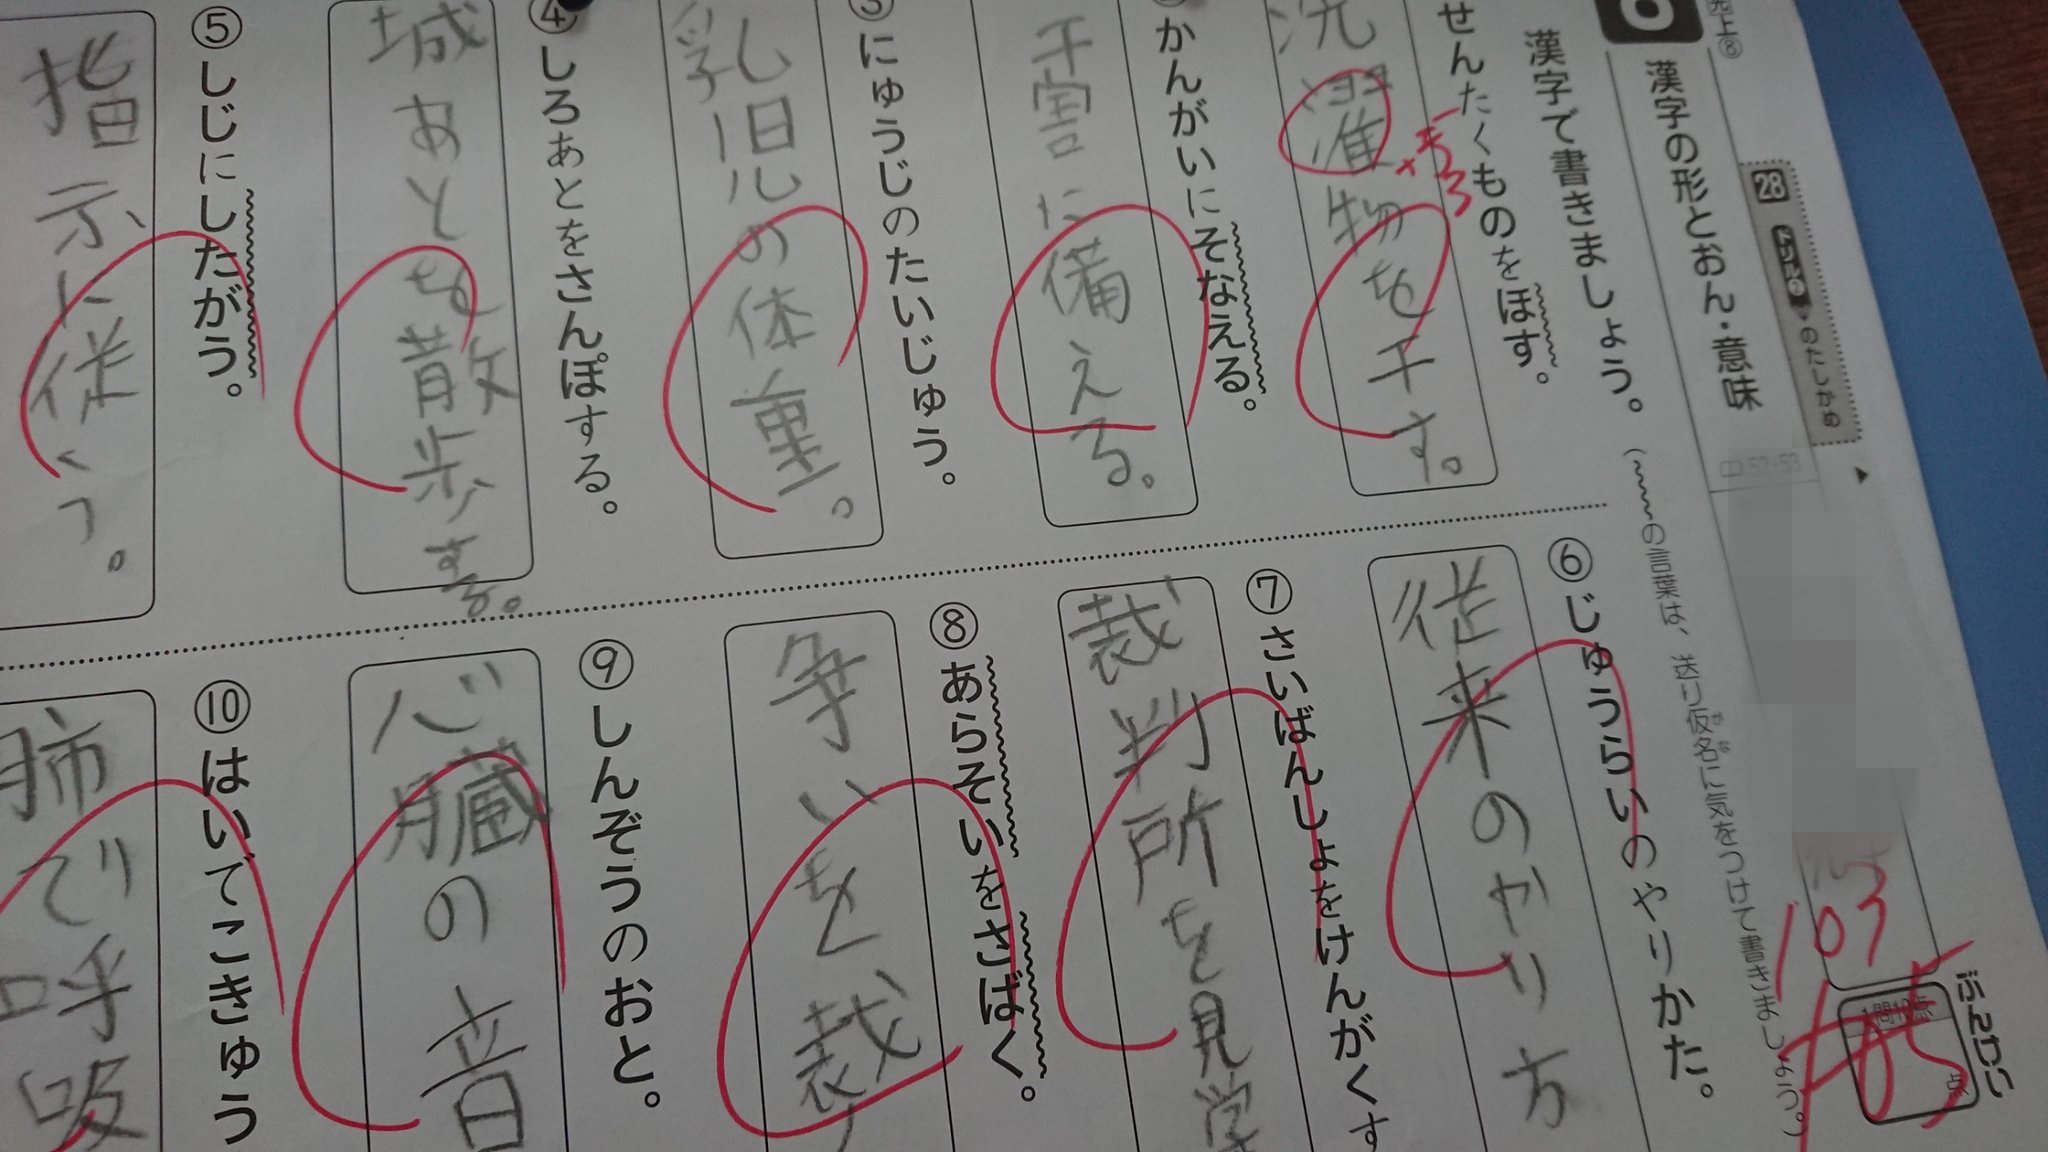 光上⑧
28
のたしかめ
6
漢字の形とおん・意味
52・53
漢字で書きましょう。(〰の言葉は、送り仮名に気をつけて書きましょう。)
かな
せんたくものをほす。
洗濯物を干す。
かんがいにそなえる。
干害に備える。
③にゅうじのたいじゅう。
乳児の体重。
④しろあとをさんぽする。
城あとを散歩する。
⑤しじにしたがう。
指示に従う。
⑥じゅうらいのやりかた。
従来のやり方
⑦さいばんしょをけんがくす
裁判所を見学
⑧あらそいをさばく。
争いを裁
⑨しんぞうのおと。
心臓の音
⑩はいでこきゅう
肺で呼吸
103
105
1問10点
点
ぶんけい